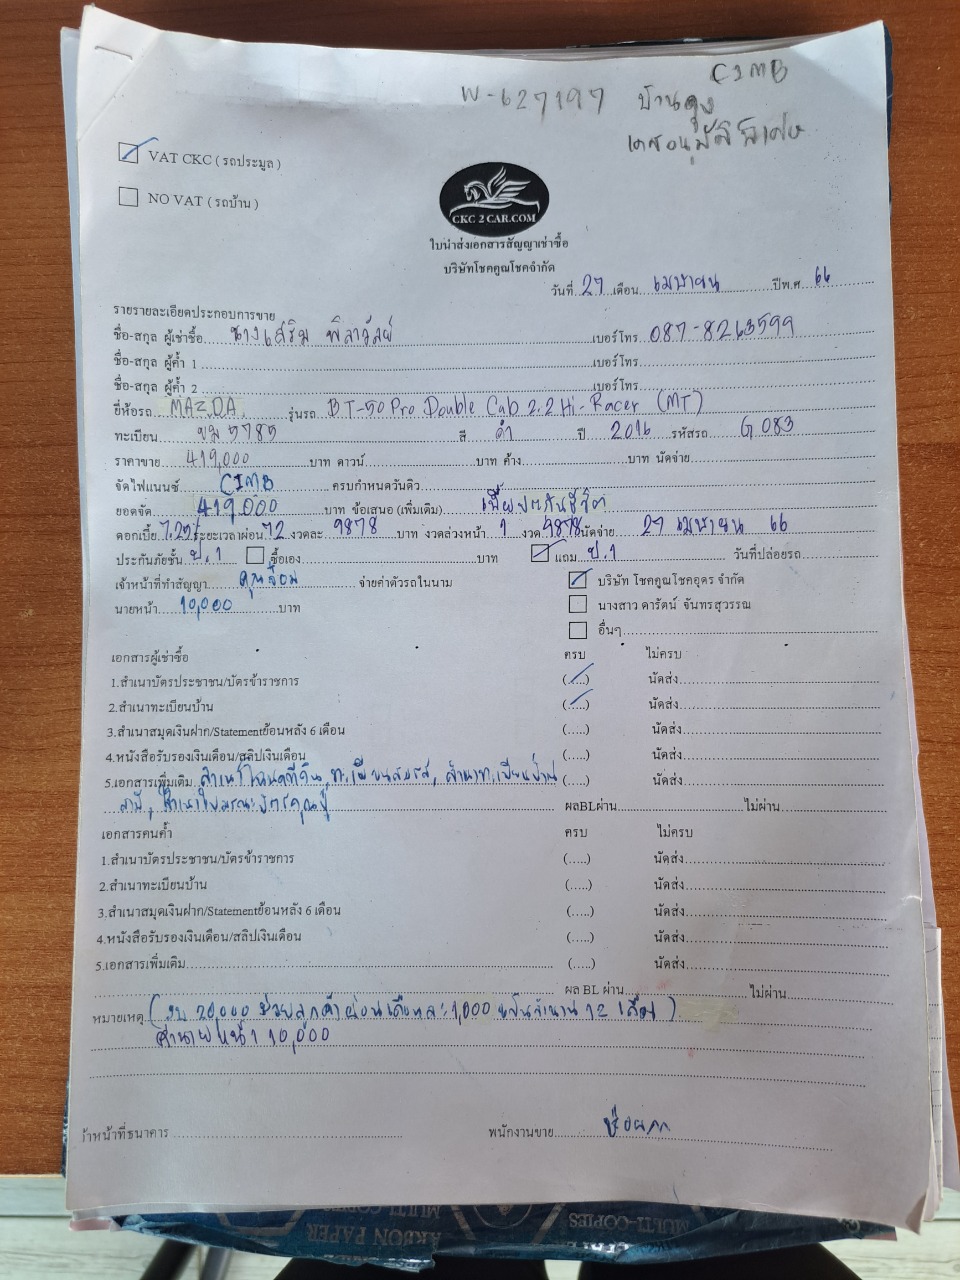 CIMB
W-627197 บ้านดุง
VAT CKC ( รถประมูล )
NO VAT ( รถบ้าน )
CKC 2 CAR.COM
ใบนำส่งเอกสารสัญญาเช่าซื้อ
บริษัทโชคคูณโชคจำกัด
วันที่ 27 เดือน เมษายน ปีพ.ศ 66
รายรายละเอียดประกอบการขาย
ชื่อ-สกุล ผู้เช่าซื้อ นางเสริม พิลาวัลย์ เบอร์โทร 087-8263599
ชื่อ-สกุล ผู้ค้ำ 1 เบอร์โทร
ชื่อ-สกุล ผู้ค้ำ 2 เบอร์โทร
ยี่ห้อรถ MAZDA รุ่นรถ BT-50 Pro Double Cab 2.2 Hi-Racer (MT)
ทะเบียน ขม 5785 สี ดำ ปี 2016 รหัสรถ G 083
ราคาขาย 419,000 บาท ดาวน์ บาท ค้าง บาท นัดจ่าย
จัดไฟแนนซ์ CIMB ครบกำหนดวันดิว
ยอดจัด 419,000 บาท ข้อเสนอ (เพิ่มเติม) เบี้ยประกันชีวิต
ดอกเบี้ย 7.25% ระยะเวลาผ่อน 72 งวดละ 9878 บาท งวดล่วงหน้า 1 งวด 9878 นัดจ่าย 27 เมษายน 66
ประกันภัยชั้น ป.1 ซื้อเอง บาท แถม ป.1 วันที่ปล่อยรถ
เจ้าหน้าที่ทำสัญญา คุณส้อม จ่ายค่าตัวรถในนาม บริษัท โชคคูณโชคอุดร จำกัด
นายหน้า 10,000 บาท นางสาว ดารัตน์ จันทรสุวรรณ
อื่นๆ
เอกสารผู้เช่าซื้อ ครบ ไม่ครบ
1.สำเนาบัตรประชาชน/บัตรข้าราชการ (.....) นัดส่ง
2.สำเนาทะเบียนบ้าน (.....) นัดส่ง
3.สำเนาสมุดเงินฝาก/Statementย้อนหลัง 6 เดือน (.....) นัดส่ง
4.หนังสือรับรองเงินเดือน/สลิปเงินเดือน (.....) นัดส่ง
5.เอกสารเพิ่มเติม สำเนาโฉนดที่ดิน, ทะเบียนสมรส, สำเนาทะเบียนบ้าน (.....) นัดส่ง
สามี, สำเนาใบมรณะบัตรคุณปู่ ผลBLผ่าน ไม่ผ่าน
เอกสารคนค้ำ ครบ ไม่ครบ
1.สำเนาบัตรประชาชน/บัตรข้าราชการ (.....) นัดส่ง
2.สำเนาทะเบียนบ้าน (.....) นัดส่ง
3.สำเนาสมุดเงินฝาก/Statementย้อนหลัง 6 เดือน (.....) นัดส่ง
4.หนังสือรับรองเงินเดือน/สลิปเงินเดือน (.....) นัดส่ง
5.เอกสารเพิ่มเติม (.....) นัดส่ง
ผล BL ผ่าน ไม่ผ่าน
หมายเหตุ ( งบ 20,000 ช่วยลูกค้าผ่อนเดือนละ 1,000 เป็นจำนวน 12 เดือน )
ค่านายหน้า 10,000
จ้าหน้าที่ธนาคาร พนักงานขาย
ARBON PAPER
MULTI-COPIES
MULTI-COPIES